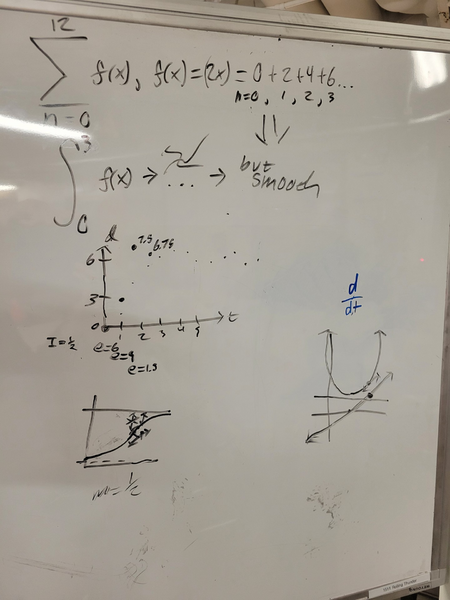 12
∑ f(x), f(x)=(2x) = 0+2+4+6...
n=0
n=0, 1, 2, 3
∫ f(x) → ... → but smooth
0
d
7.5 6.75
6
3
0
1 2 3 4 5 t
I=½
e=6
e=9
e=1.5
d/dt
m=½